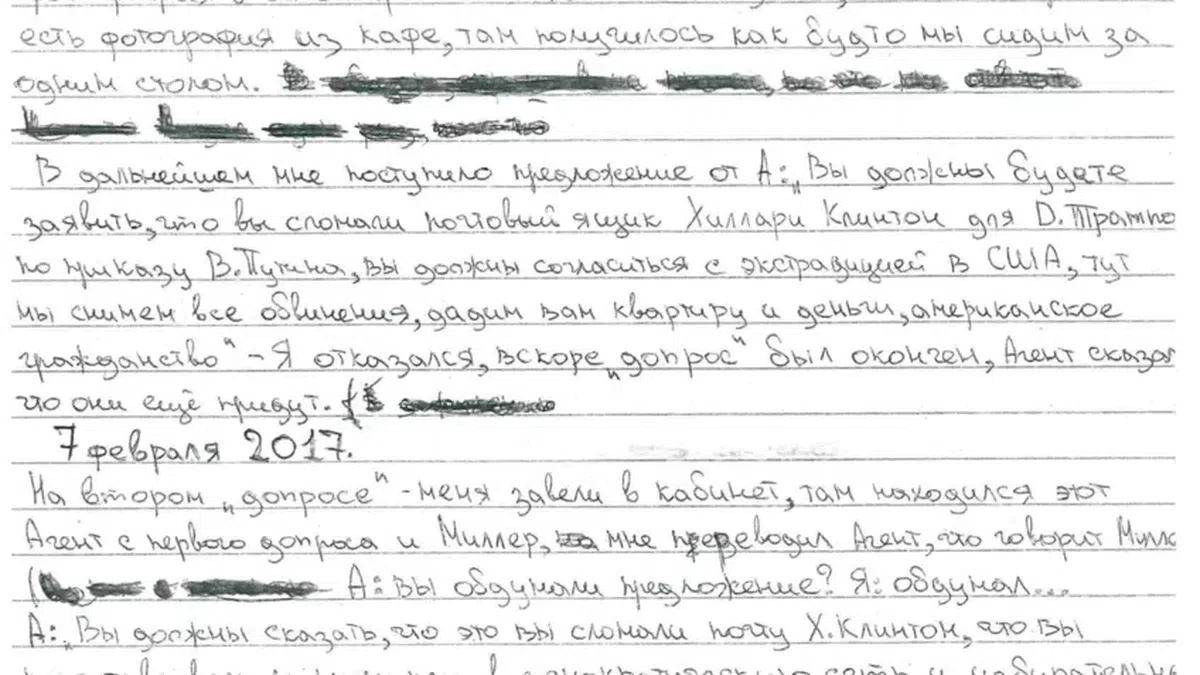 есть фотография из кафе, там получилось как будто мы сидим за
одним столом.
В дальнейшем мне поступило предложение от А: „Вы должны будете
заявить, что вы сломали почтовый ящик Хиллари Клинтон для D. Трампа
по приказу В. Путина, вы должны согласиться с экстрадицией в США, тут
мы снимем все обвинения, дадим вам квартиру и деньги, американское
гражданство" - Я отказался, вскоре „допрос" был окончен, Агент сказал
что они ещё придут.
7 февраля 2017.
На втором „допросе" - меня завели в кабинет, там находился этот
Агент с первого допроса и Миллер, мне переводил Агент, что говорит Милле
А: вы обдумали предложение? Я: обдумал...
А: „Вы должны сказать, что это вы сломали почту Х. Клинтон, что вы